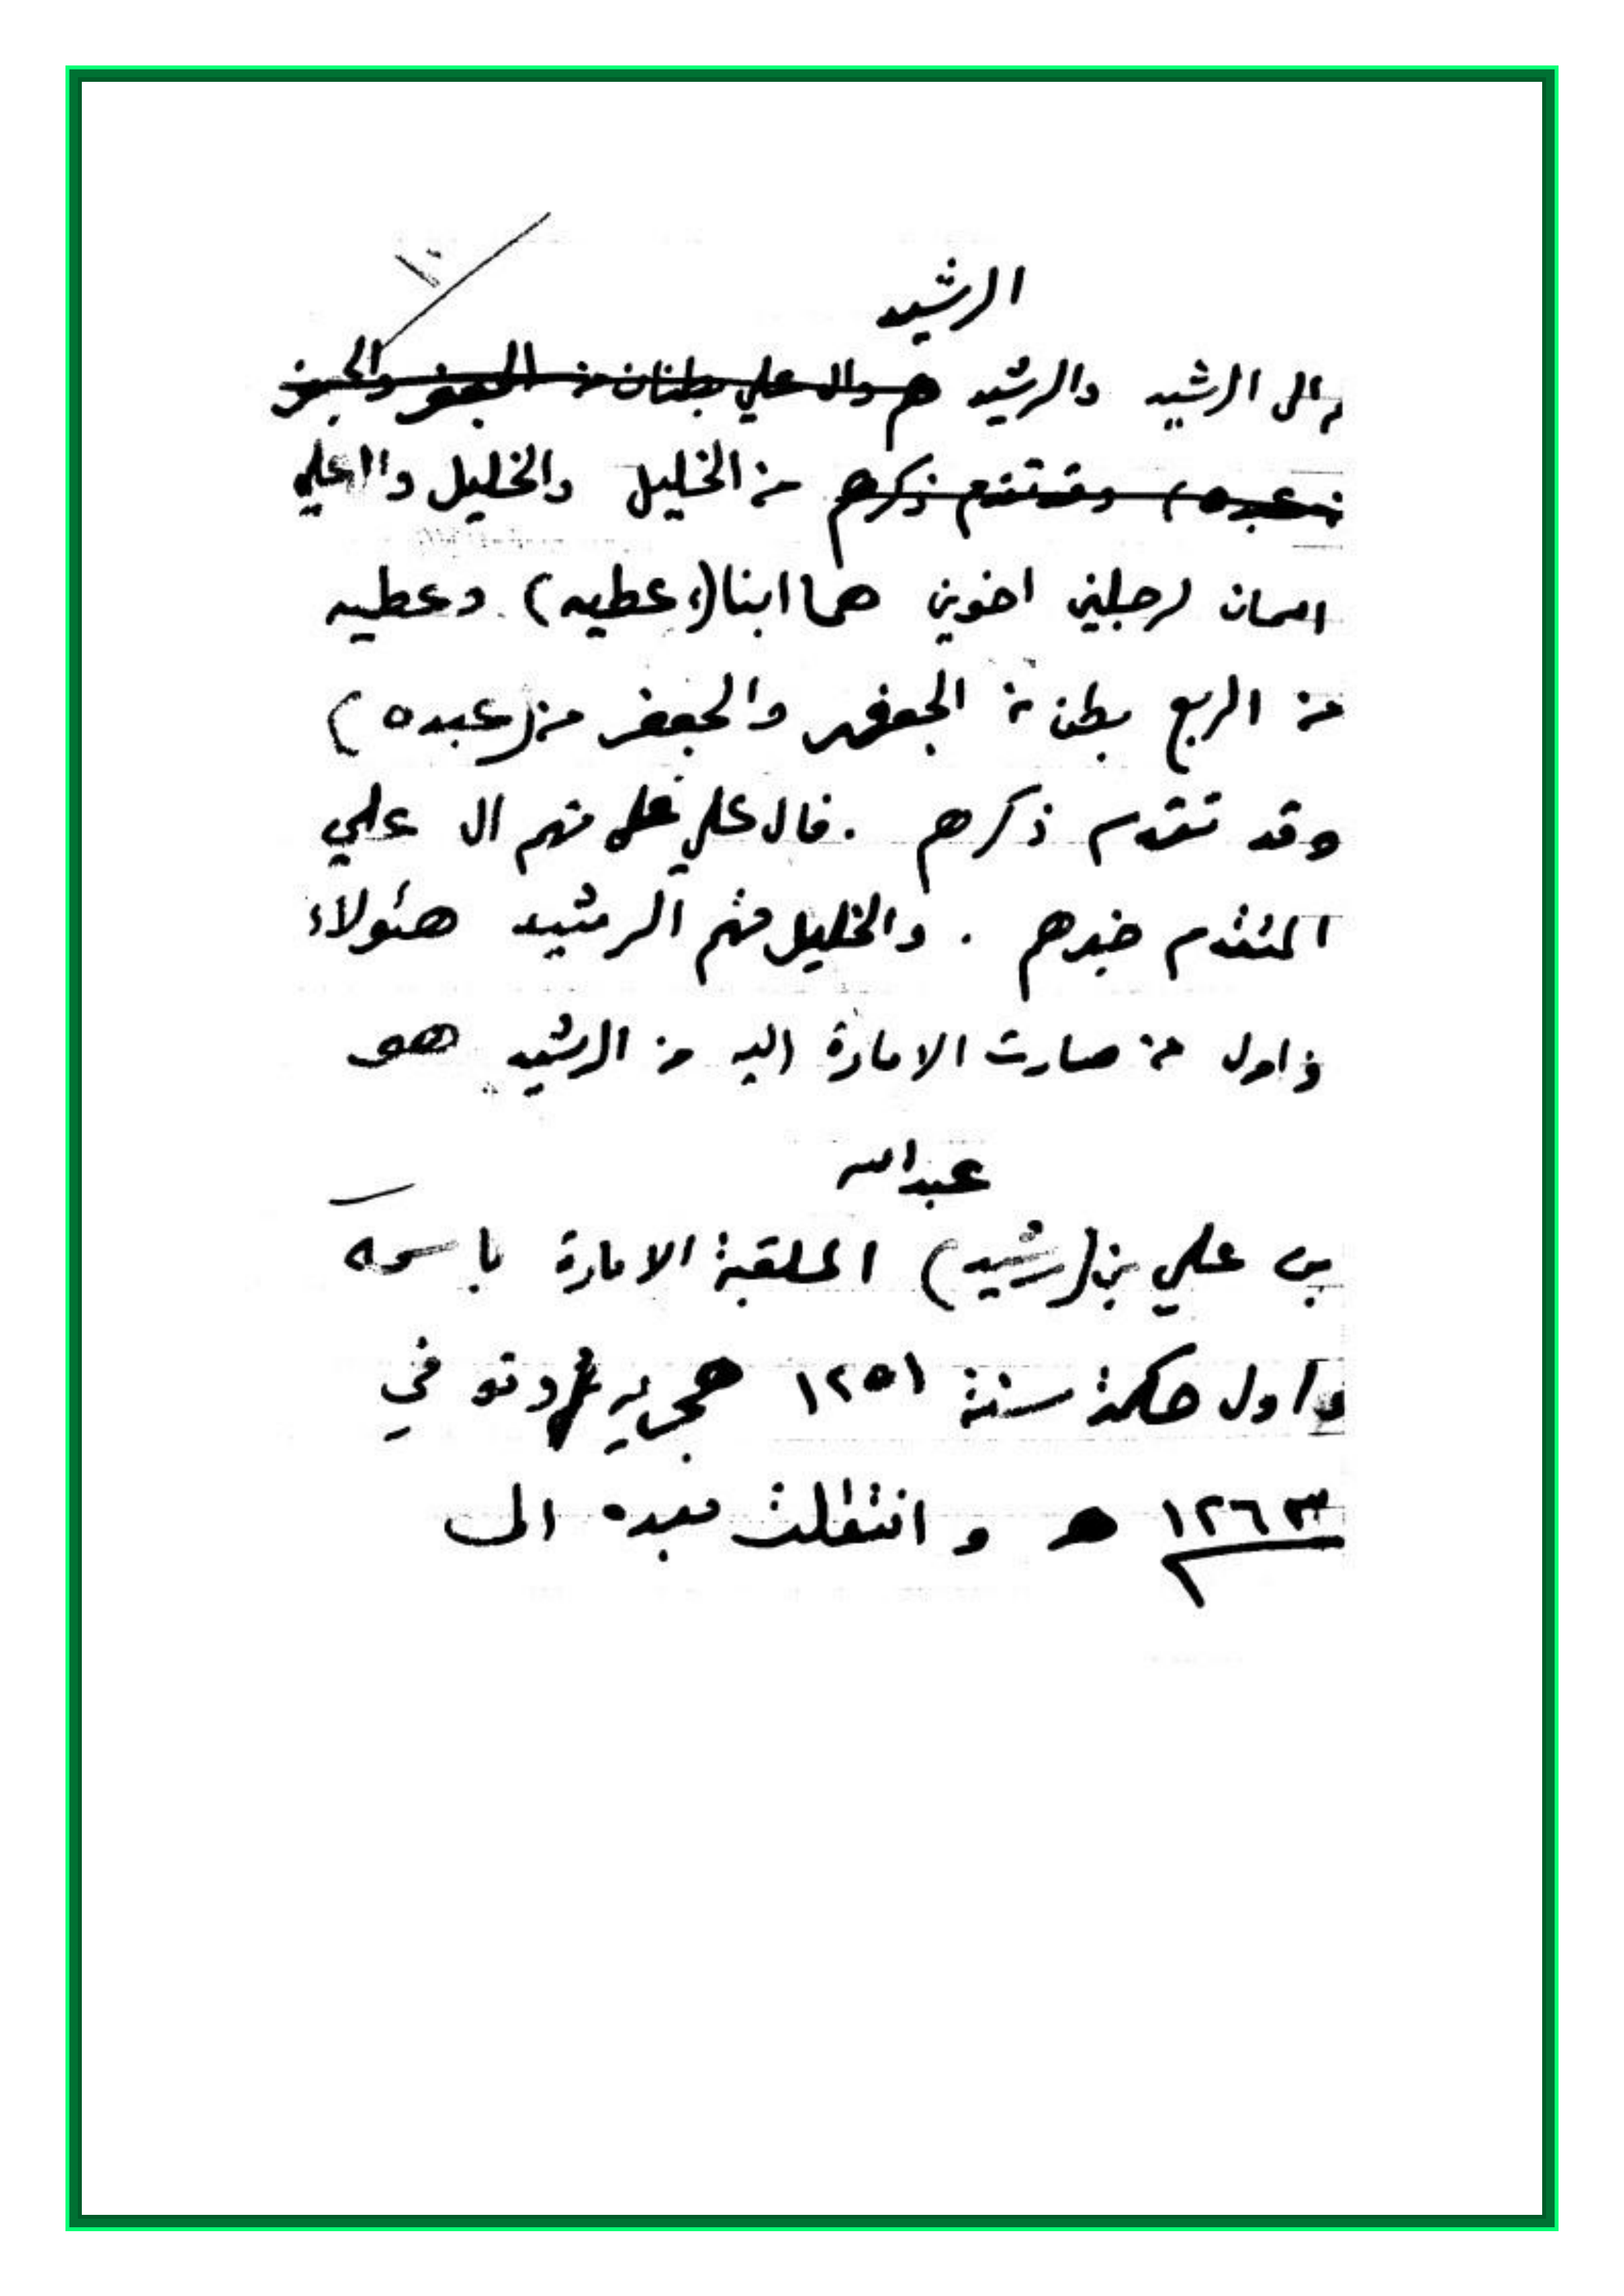 ١٠
الرشيد
الى الرشيد والرشيد هم وال علي بطنان من الجعفر والجعفر
من عبده) وقد تقدم ذكرهم من الخليل والخليل وال علي
اسمان لرجلين اخوين هما ابنا (عطيه) وعطيه
من الربع بطن من الجعفر والجعفر من (عبده)
وقد تقدم ذكرهم . فال علي منهم ال علي
المتقدم خبرهم . والخليل منهم الرشيد هئولاء
واول من صارت الامارة اليه من الرشيد هو
عبدالله
بن علي بن (رشيد) الملقبة الامارة باسمه
واول حكمة سنة ١٢٥١ هجريه وتو في
١٢٦٣ هـ و انتقلت بعده الى